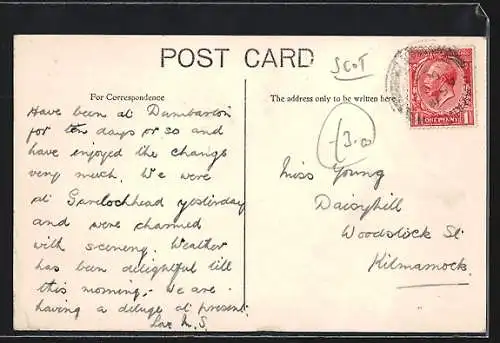 POST CARD
SCOT
For Correspondence
The address only to be written here
ONE PENNY
1 1
3.00
Have been at Dumbarton
for ten days or so and
have enjoyed the change
very much. We were
at Garelochhead yesterday
and were charmed
with scenery. Weather
has been delightful till
this morning,- we are
having a deluge at present.
Love M.S.
Miss Young
Daisyhill
Woodstock St.
Kilmarnock.